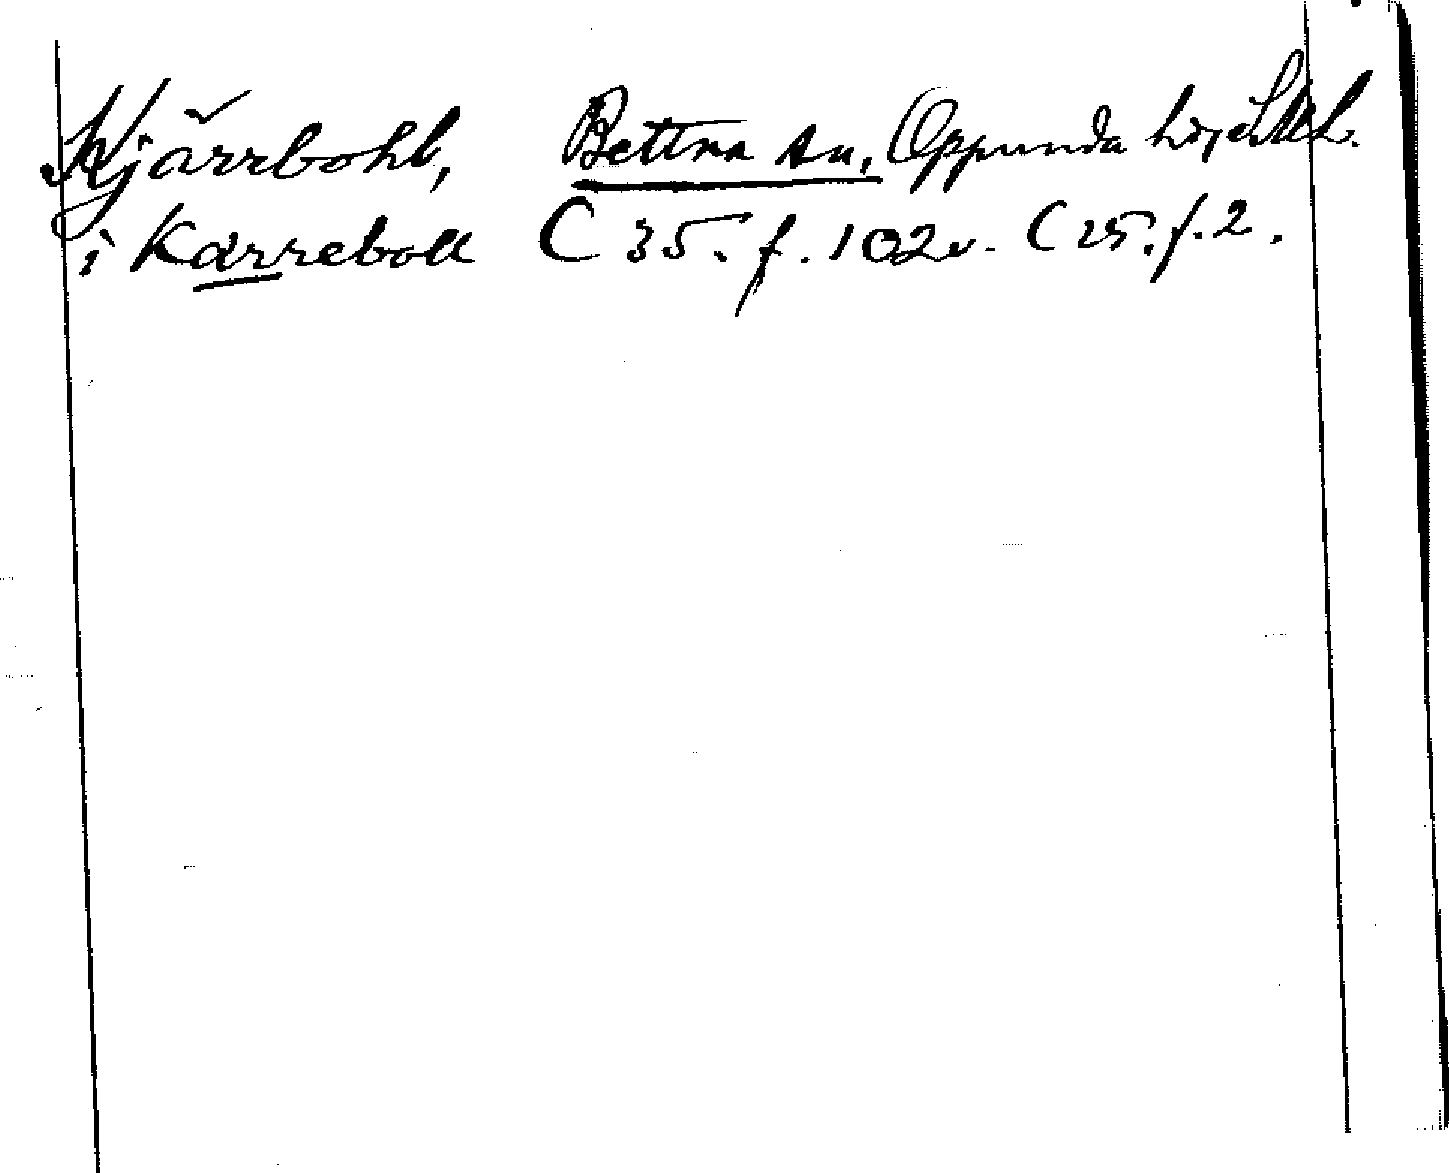 Kjärrbohl, Bettna sn, Oppunda hd,
i Karreboll C 35. f. 102v. C 25. f. 2.